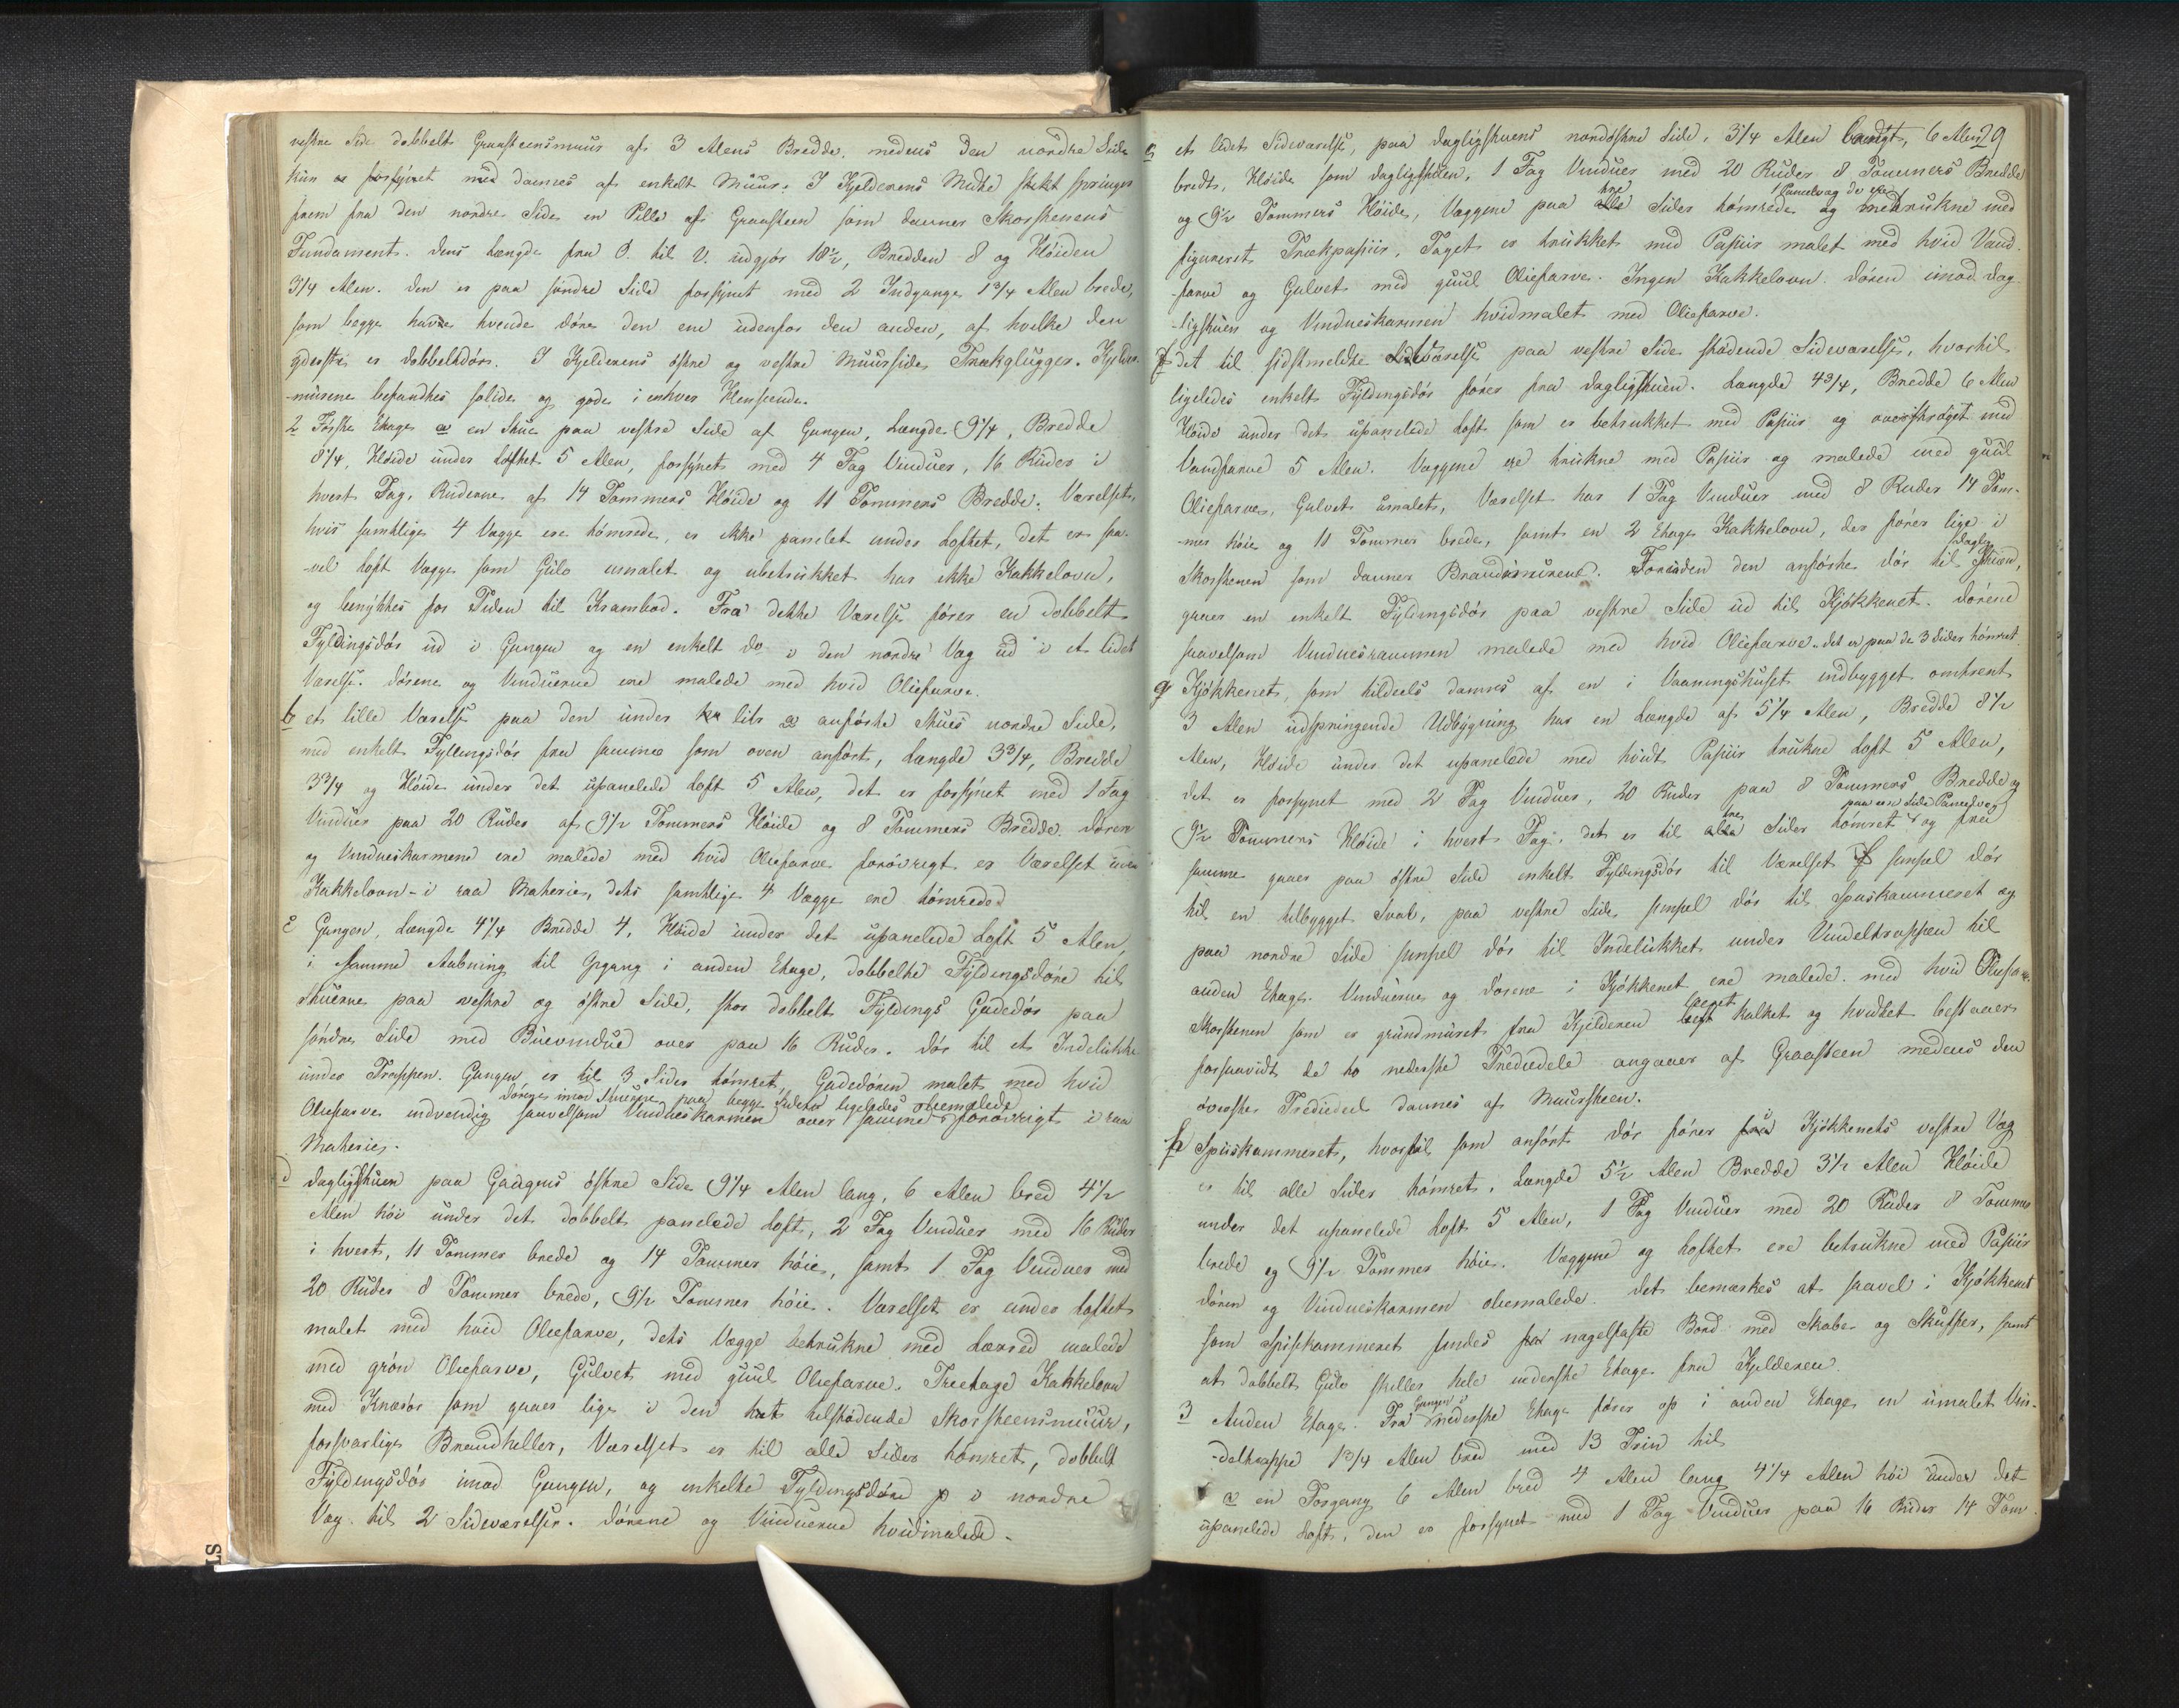 vestre Side dobbelt Graasteensmuur af 3 Alens Bredde, medens den nordre Side
kun er forsynet med dannes af enkelt Muur. I Kjelderens Midte stikt springer
frem fra den nordre Side en Pille af Graasteen som danner Skorstenens
Fundament. dens Længde fra O. til V. udgjør 10½, Bredden 8 og Høiden
3¼ Alen. den er paa søndre Side forsynet med 2 Indgange 1¾ Alen brede,
som begge have hvende døre den ene udenfor den anden, af hvilke den
yderste er dobbeltdør. I Kjelderens østre og vestre Muurside Trækglugger. Kjelder
-murene befandtes solide og gode i enhver Henseende.
2 Første Etage a en Stue paa vestre Side af Gangen, Længde 9¼, Bredde
8¼, Høide under Loftet 5 Alen, forsynet med 4 Fag Vinduer, 16 Ruder i
hvert Fag, Ruderne af 14 Tommers Høide og 11 Tommers Bredde. Værelset,
hvis samtlige 4 Vægge ere tømrede, er ikke panelet under Loftet, det er saa-
-vel Loft Vægge som Gulv umalet og ubetrukket har ikke Kakkelovn,
og benyttes for Tiden til Krambod. Fra dette Værelse fører en dobbelt
Fyldingsdør ud i Gangen og en enkelt do i den nordre Væg ud i et lidet
Værelse. dørene og Vinduerne ere malede med hvid Oliefarve.
b et lille Værelse paa den under litr a anførte Stues nordre Side,
med enkelt Fyllingsdør fra samme som oven anført, Længde 3¾, Bredde
3¾ og Høide under det upanelede Loft 5 Alen, det er forsynet med 1 Fag
Vinduer paa 20 Ruder af 9½ Tommers Høide og 8 Tommers Bredde. døren
og Vindueskarmene ere malede med hvid Oliefarve forøvrigt er Værelset uden
Kakkelovn - i raa Materie, dets samtlige 4 Vægge ere tømrede
c Gangen, Længde 4¼ Bredde 4, Høide under det upanelede Loft 5 Alen,
i samme Aabning til Opgang i anden Etage, dobbelte Fyldingsdøre til
Stuerne paa vestre og østre Side, stor dobbelt Fyldings Gadedør paa
søndre Side med Buevindue over paa 16 Ruder. dør til et Indelukke
under Trappen. Gangen er til 3 Sider tømret, Gadedøren malet med hvid
dørene imod Stuerne paa begge Sider ligeledes oliemalede
Oliefarve indvendig saavelsom Vindueskarmen over samme forøvrigt i raa
Materie.
d dagligstuen paa Gangens østre Side 9¼ Alen lang, 6 Alen bred 4½
Alen høi under det dobbelt panelede Loft, 2 Fag Vinduer med 16 Ruder
i hvert, 11 Tommer brede og 14 Tommer høie, samt 1 Fag Vinduer med
20 Ruder 8 Tommer brede, 9½ Tommer høie. Værelset er under Loftet
malet med hvid Oliefarve, dets Vægge betrukne med Lærred malede
med grøn Oliefarve, Gulvet med guul Oliefarve. Treetage Kakkelovn
med Knærør som gaaer lige i den tæt tilstødende Skorsteensmuur,
forsvarlige Brandheller, Værelset er til alle Sider tømret, dobbelt
Fyldingsdør imod Gangen, og enkelte Fyldingsdøre i nordre
Væg til 2 Sideværelser. dørene og Vinduerne hvidmalede.
29
e et lidet Sideværelse, paa dagligstuens nordøstre Side, 3¼ Alen langt, 6 Alen
bredt, Høide som dagligstuen, 1 Fag Vinduer med 20 Ruder 8 Tommers Bredde
tre 1 Panelvæg de ere
og 9½ Tommers Høide, Væggene paa alle Sider tømrede og betrukne med
figureret Trækpapiir, Taget er trukket med Papiir malet med hvid Vand-
-farve og Gulvet med guul Oliefarve. Ingen Kakkelovn. døren imod dag-
-ligstuen og Vindueskarmen hvidmalet med Oliefarve.
f det til sidstmeldte Sideværelse paa vestre Side stødende Sideværelse, hvortil
ligeledes enkelt Fyldingsdør fører fra dagligstuen. Længde 4¾, Bredde 6 Alen
Høide under det upanelede Loft som er betrukket med Papiir og overstrøget med
Vandfarve 5 Alen. Væggene ere trukne med Papiir og malede med guul
Oliefarve, Gulvet umalet, Værelset har 1 Fag Vinduer med 8 Ruder 14 Tom-
-mer høie og 11 Tommer brede, samt en 2 Etage Kakkelovn, der fører lige i
daglig
Skorstenen som danner Brandmuren. Foruden den anførte dør til Stuen,
gaaer en enkelt Fyldingsdør paa vestre Side ud til Kjøkkenet. dørene
saavelsom Vinduesrammen malede med hvid Oliefarve. det er paa de 3 Sider tømret
g Kjøkkenet, som tildeels dannes af en i Vaaningshuset indbygget omtrent
3 Alen udspringende Udbygning har en Længde af 5¼ Alen, Bredde 8½
Alen, Høide under det upanelede med hvidt Papiir trukne Loft 5 Alen,
det er forsynet med 2 Fag Vinduer, 20 Ruder paa 8 Tommers Bredde og
tre paa een Side Panelvæg
9½ Tommers Høide i hvert Fag. det er til alle Sider tømret og fra
samme gaaer paa østre Side enkelt Fyldingsdør til Værelset f simpel dør
til en tilbygget Sval, paa vestre Side simpel dør til Spiskammeret og
paa nordre Side simpel dør til Indelukket under Vindeltrappen til
anden Etage. Vinduerne og dørene i Kjøkkenet ere malede med hvid Oliefarve
Skorstenen som er grundmuret fra Kjelderen kalket og hvidtet bestaaer
forsaavidt de to nederste Trediedele angaaer af Graasteen medens den
øverste Trediedeel dannes af Muursteen.
h Spiiskammeret, hvortil som anført dør fører fra Kjøkkenets vestre Væg
er til alle Sider tømret, Længde 5½ Alen Bredde 3½ Alen Høide
under det upanelede Loft 5 Alen, 1 Fag Vinduer med 20 Ruder 8 Tommer
brede og 9½ Tommer høie. Væggene og Loftet ere betrukne med Papiir
døren og Vindueskarmen oliemalede. det bemærkes at saavel i Kjøkkenet
som Spiskammeret findes nagelfaste Bord med Skabe og Skuffer, samt
at dobbelt Gulv skiller hele nederste Etage fra Kjelderen.
Gangen i
3 Anden Etage. Fra nederste Etage fører op i anden Etage en umalet Vin-
-deltrappe 1¾ Alen bred med 13 Trin til
a en Forgang 6 Alen bred 4 Alen lang 4¼ Alen høi under det
upanelede Loft, den er forsynet med 1 Fag Vinduer paa 16 Ruder 14 Tom-